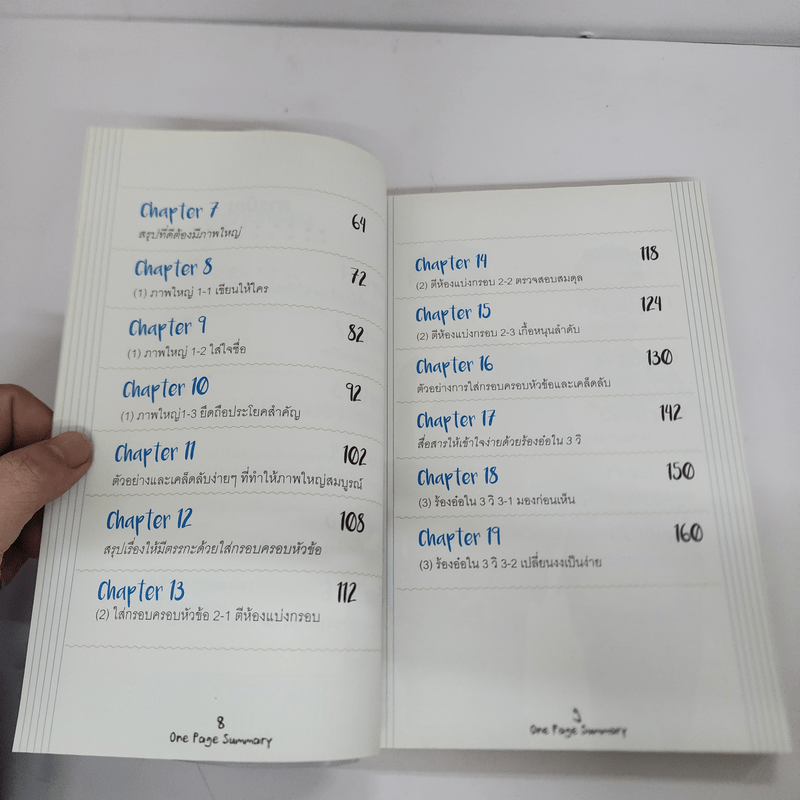 Chapter 7 64
สรุปที่ดีต้องมีภาพใหญ่
Chapter 8 72
(1) ภาพใหญ่ 1-1 เขียนให้ใคร
Chapter 9 82
(1) ภาพใหญ่ 1-2 ใส่ใจชื่อ
Chapter 10 92
(1) ภาพใหญ่1-3 ยึดถือประโยคสำคัญ
Chapter 11 102
ตัวอย่างและเคล็ดลับง่ายๆ ที่ทำให้ภาพใหญ่สมบูรณ์
Chapter 12 108
สรุปเรื่องให้มีตรรกะด้วยใส่กรอบครอบหัวข้อ
Chapter 13 112
(2) ใส่กรอบครอบหัวข้อ 2-1 ตีห้องแบ่งกรอบ
8
One Page Summary
Chapter 14 118
(2) ตีห้องแบ่งกรอบ 2-2 ตรวจสอบสมดุล
Chapter 15 124
(2) ตีห้องแบ่งกรอบ 2-3 เกื้อหนุนลำดับ
Chapter 16 130
ตัวอย่างการใส่กรอบครอบหัวข้อและเคล็ดลับ
Chapter 17 142
สื่อสารให้เข้าใจง่ายด้วยร้องอ๋อใน 3 วิ
Chapter 18 150
(3) ร้องอ๋อใน 3 วิ 3-1 มองก่อนเห็น
Chapter 19 160
(3) ร้องอ๋อใน 3 วิ 3-2 เปลี่ยนงงเป็นง่าย
9
One Page Summary